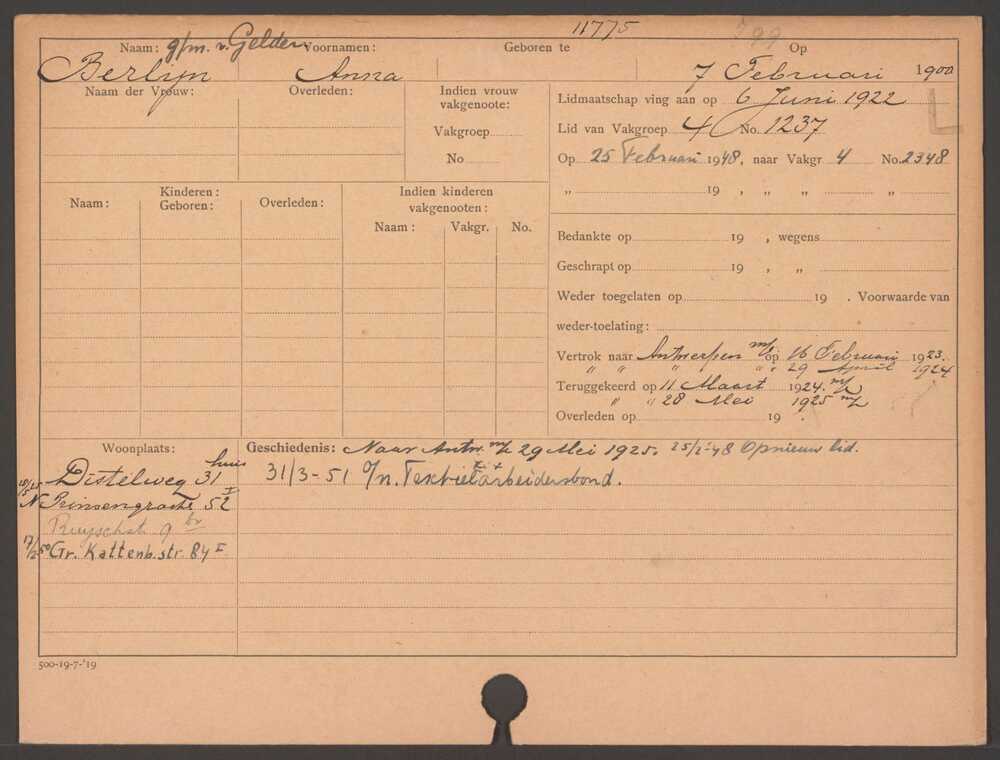 11775
799
Naam: g/m. v. Gelder Voornamen: Geboren te Op
Berlijn Anna 7 Februari 1900
Naam der Vrouw: Overleden: Indien vrouw vakgenoote: Vakgroep No
Lidmaatschap ving aan op 6 Juni 1922 L
Lid van Vakgroep 4 No. 1237
Op 25 Februari 1948, naar Vakgr 4 No. 2348
„ 19 , „ „ „
Kinderen:
Naam: Geboren: Overleden:
Indien kinderen vakgenooten:
Naam: Vakgr. No.
Bedankte op 19 , wegens
Geschrapt op 19 , „
Weder toegelaten op 19 . Voorwaarde van
weder-toelating:
Vertrok naar Antwerpen m/b op 16 Februari 1923.
„ „ „ „ 29 April 1924
Teruggekeerd op 11 Maart 1924. m/b
„ „ 28 Mei 1925 m/b
Overleden op 19 .
Woonplaats:
Distelweg 31 huis
N Prinsengracht 52 I
Ruyschstr. 9 hs
7/2 50 Gr. Kattenb.str. 84 I
Geschiedenis: Naar Antw. m/b 29 Mei 1925. 25/2-48 Opnieuw lid.
31/3-51 o/n. Textielarbeidersbond.
500-19-7-'19